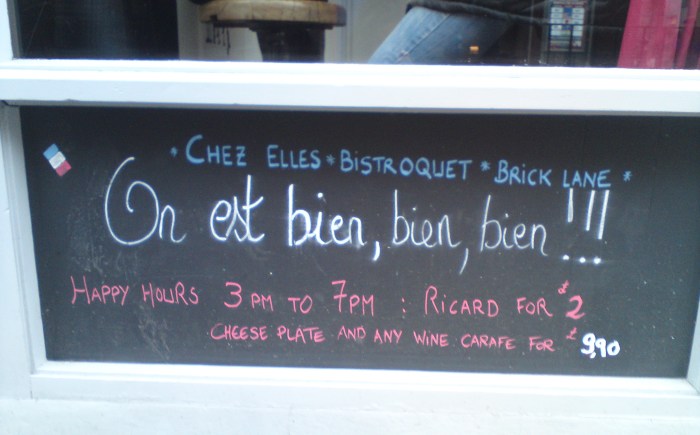 * CHEZ ELLES * BISTROQUET * BRICK LANE *
On est bien, bien, bien!!!
HAPPY HOURS 3 PM TO 7PM : RICARD FOR £2
CHEESE PLATE AND ANY WINE CARAFE FOR £9,90